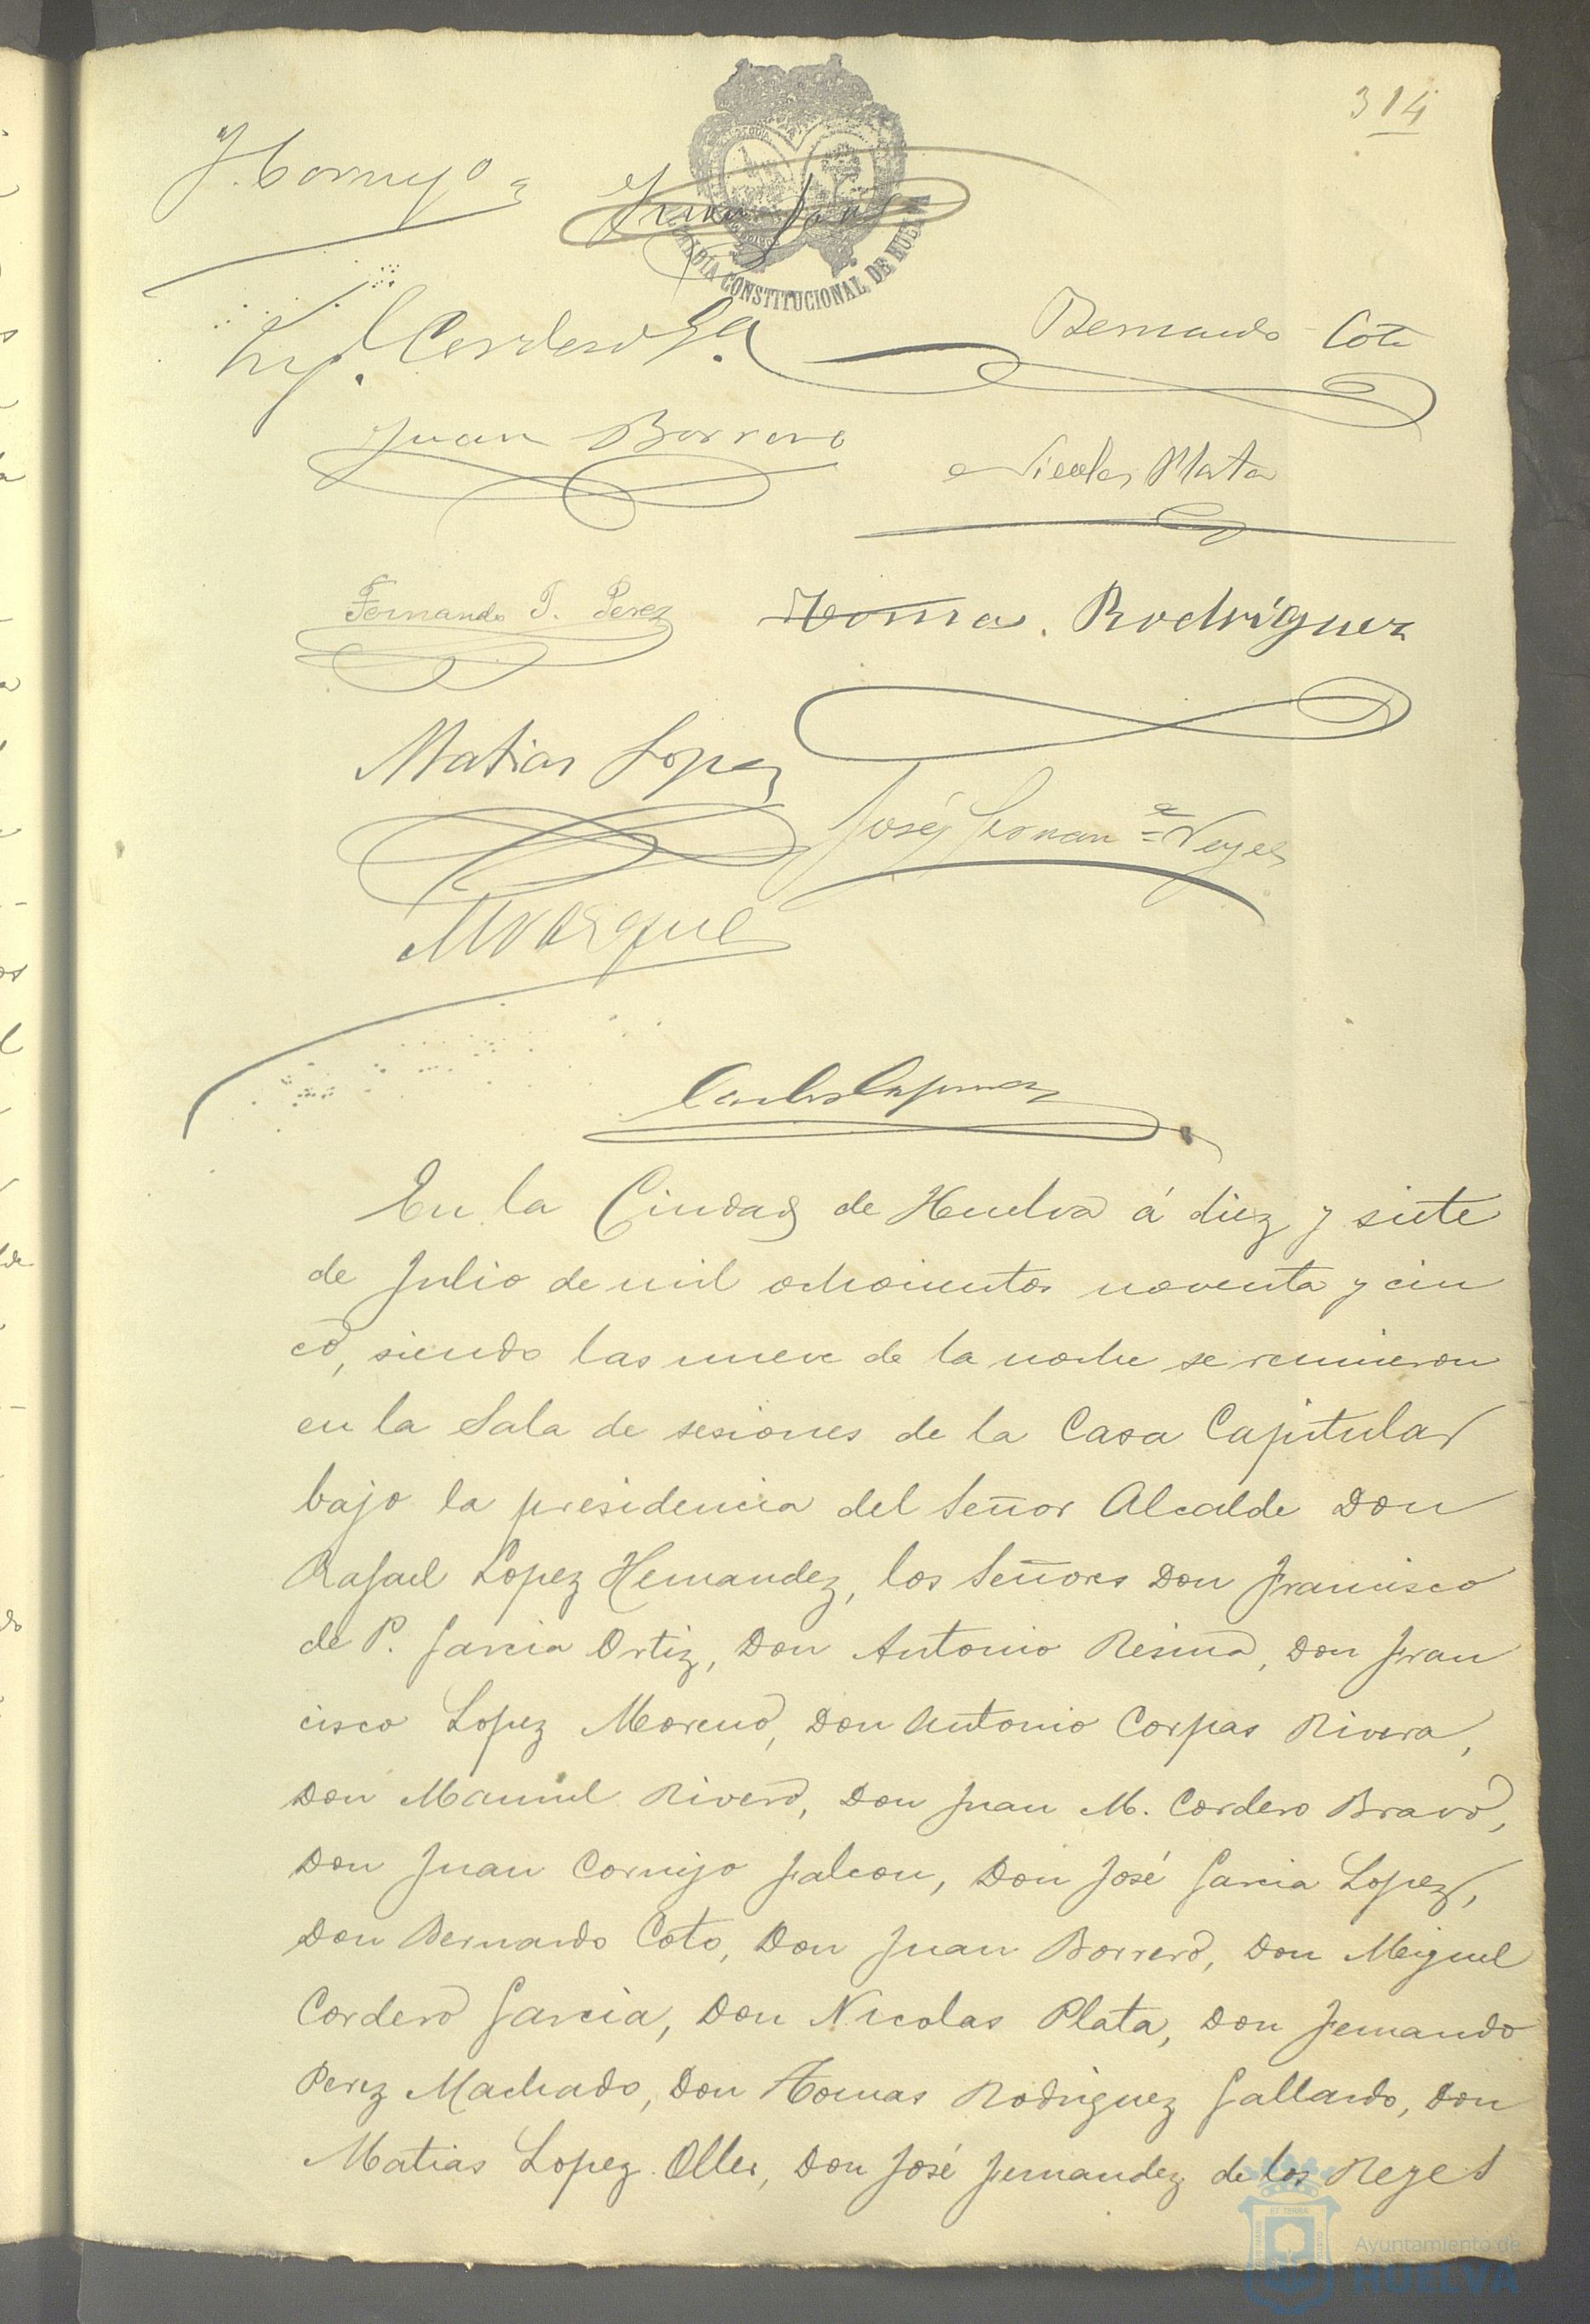 314
J. Cornejo
ALCALDÍA CONSTITUCIONAL DE HUELVA
Cordero
Bernardo Coto
Juan Borrero
Nicolas Plata
Fernando P. Perez
Tomas Rodriguez
Matias Lopez
José Fernan Reyes
En la Ciudad de Huelva á diez y siete
de Julio de mil ochocientos noventa y cin
co, siendo las nueve de la noche se reunieron
en la Sala de sesiones de la Casa Capitular
bajo la presidencia del Señor Alcalde Don
Rafael Lopez Hernandez, los Señores Don Francisco
de P. Garcia Ortiz, Don Antonio Resina, Don Fran
cisco Lopez Moreno, Don Antonio Corpas Rivera,
Don Manuel Rivero, Don Juan M. Cordero Bravo,
Don Juan Cornejo Falcon, Don José Garcia Lopez,
Don Bernardo Coto, Don Juan Borrero, Don Miguel
Cordero Garcia, Don Nicolas Plata, Don Fernando
Perez Machado, Don Tomas Rodriguez Gallardo, Don
Matias Lopez Oller, Don José Fernandez de los Reyes
Ayuntamiento de
HUELVA